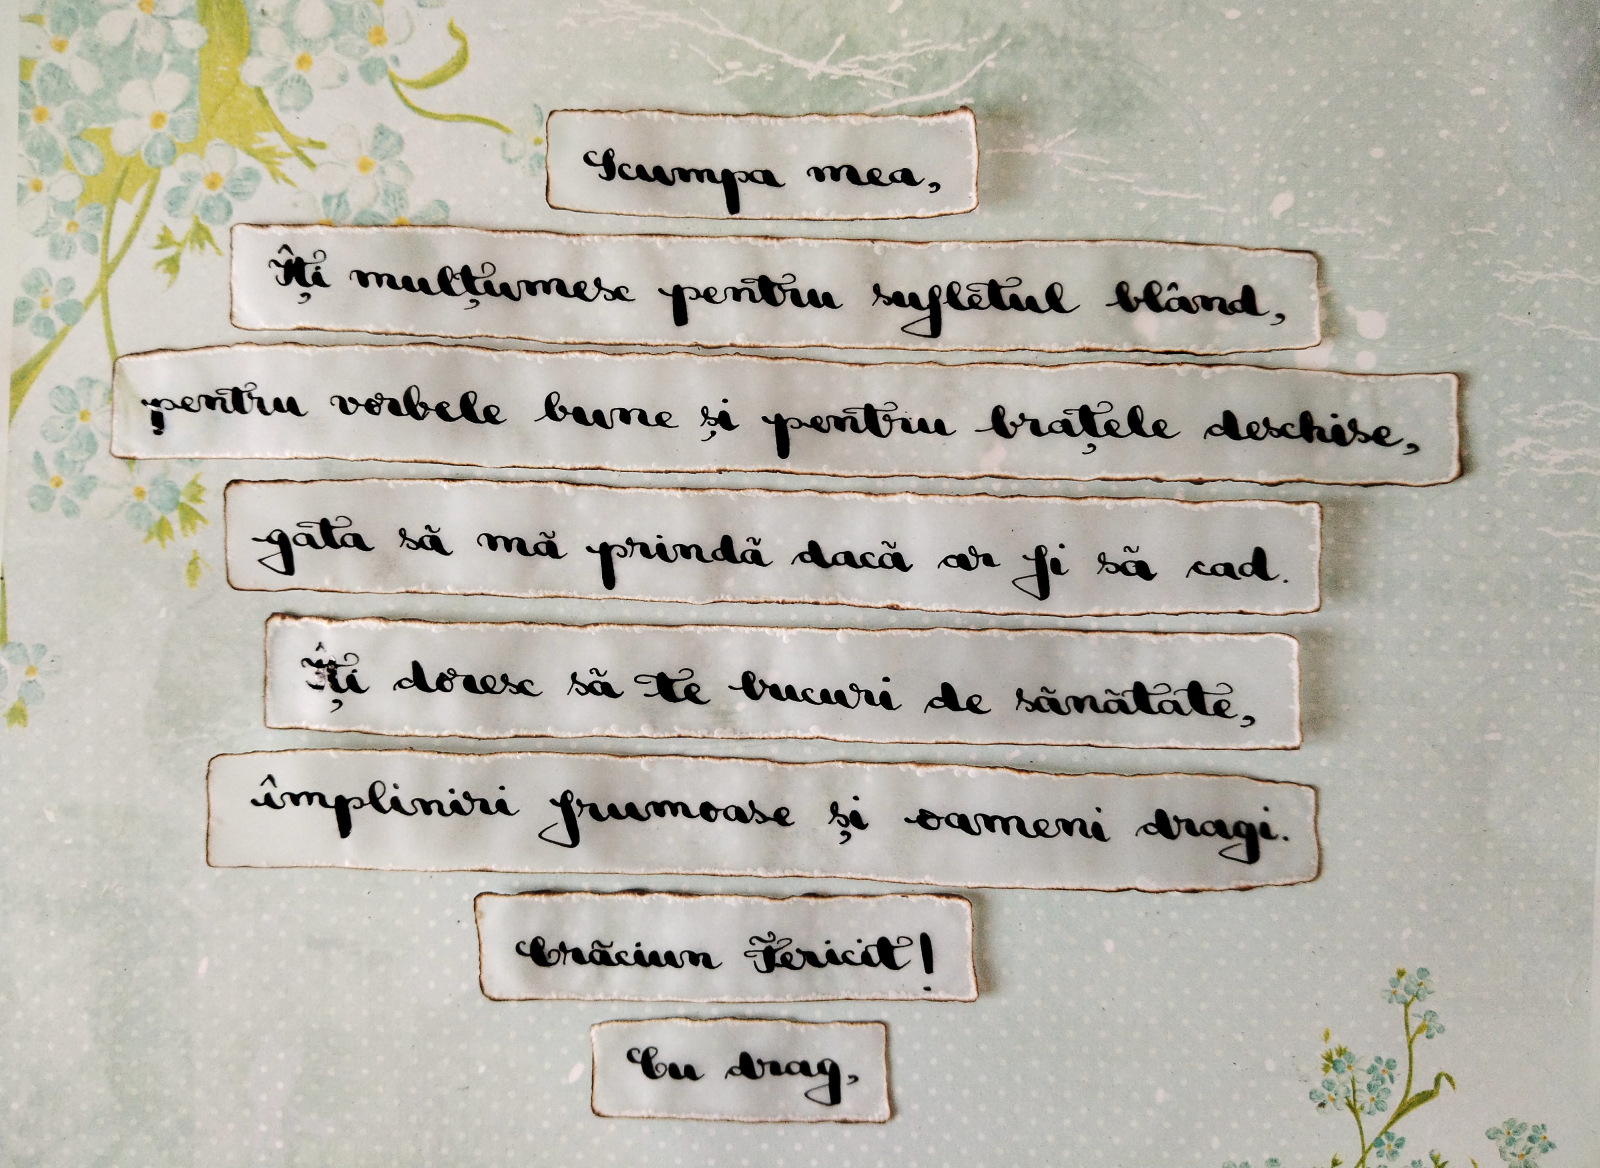 Scumpa mea,
Îți mulțumesc pentru sufletul blând,
pentru vorbele bune și pentru brațele deschise,
gata să mă prindă dacă ar fi să cad.
Îți doresc să te bucuri de sănătate,
împliniri frumoase și oameni dragi.
Crăciun Fericit!
Cu drag,